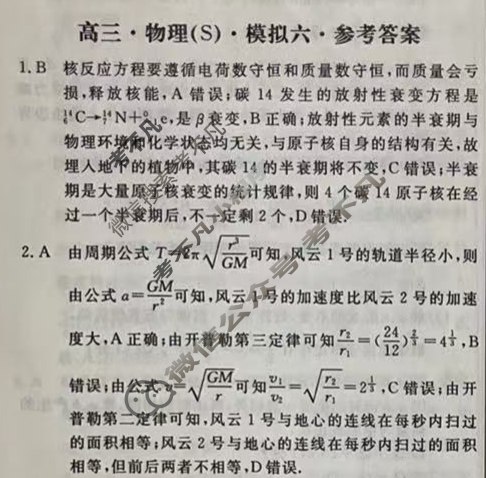 高三·物理(S)·模拟六·参考答案
1.B 核反应方程要遵循电荷数守恒和质量数守恒,而质量会亏
损,释放核能,A 错误;碳 14 发生的放射性衰变方程是
¹⁴₆C→¹⁴₇N+⁰₋₁e,是 β 衰变,B 正确;放射性元素的半衰期与
物理环境和化学状态均无关,与原子核自身的结构有关,故
埋入地下的植物中,其碳 14 的半衰期将不变,C 错误;半衰
期是大量原子核衰变的统计规律,则 4 个碳 14 原子核在经
过一个半衰期后,不一定剩 2 个,D 错误.
2.A 由周期公式 T=2π√(r³/GM) 可知,风云 1 号的轨道半径小,则
由公式 a=GM/r² 可知,风云 1 号的加速度比风云 2 号的加速
度大,A 正确;由开普勒第三定律可知 r₂/r₁=(24/12)^(2/3)=4^(1/3),B
错误;由公式 v=√(GM/r) 可知 v₁/v₂=√(r₂/r₁)=2^(1/3),C 错误;由开
普勒第二定律可知,风云 1 号与地心的连线在每秒内扫过
的面积相等;风云 2 号与地心的连线在每秒内扫过的面积
相等,但前后两者不相等,D 错误.
微信搜索考不凡
考不凡小
微信公众号:考不凡